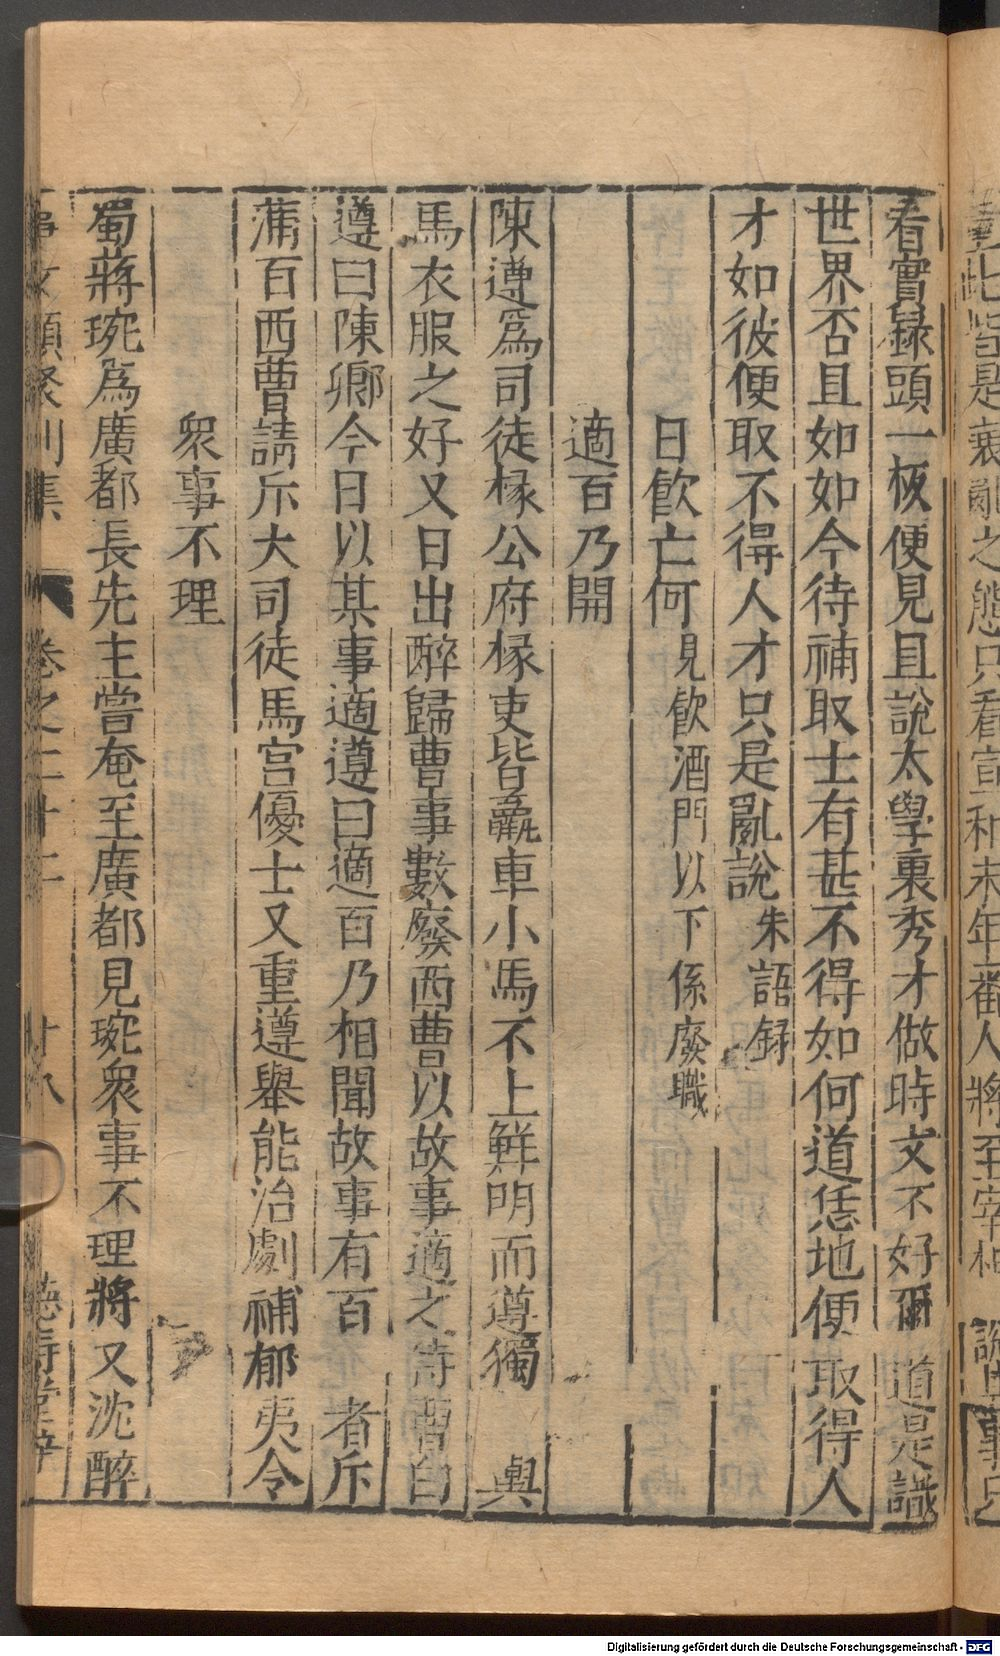 看實錄頭一板便見且說太學裏秀才做時文不好爾 道是識
世界否且如如今待補取士有甚不得如何道恁地便 取得人
才如彼便取不得人才只是亂說 朱語録
日飲亡何 見飲酒門以下係廢職
適百乃開
陳遵爲司徒椽公府椽吏皆羸車小馬不上鮮明而遵獨 輿
馬衣服之好又日出醉歸曹事數廢西曹以故事適之侍曹白
遵曰陳卿今日以某事適遵曰適百乃相聞故事有百 者斥
蒲百西曹請斥大司徒馬宮優士又重遵舉能治劇補郁夷令
衆事不理
蜀蔣琬爲廣都長先主嘗奄至廣都見琬衆事不理將又沈醉
卷之二十二 十八
此皆是衰亂之態只看宣和末年番人將至宰相 說
Digitalisierung gefördert durch die Deutsche Forschungsgemeinschaft - DFG